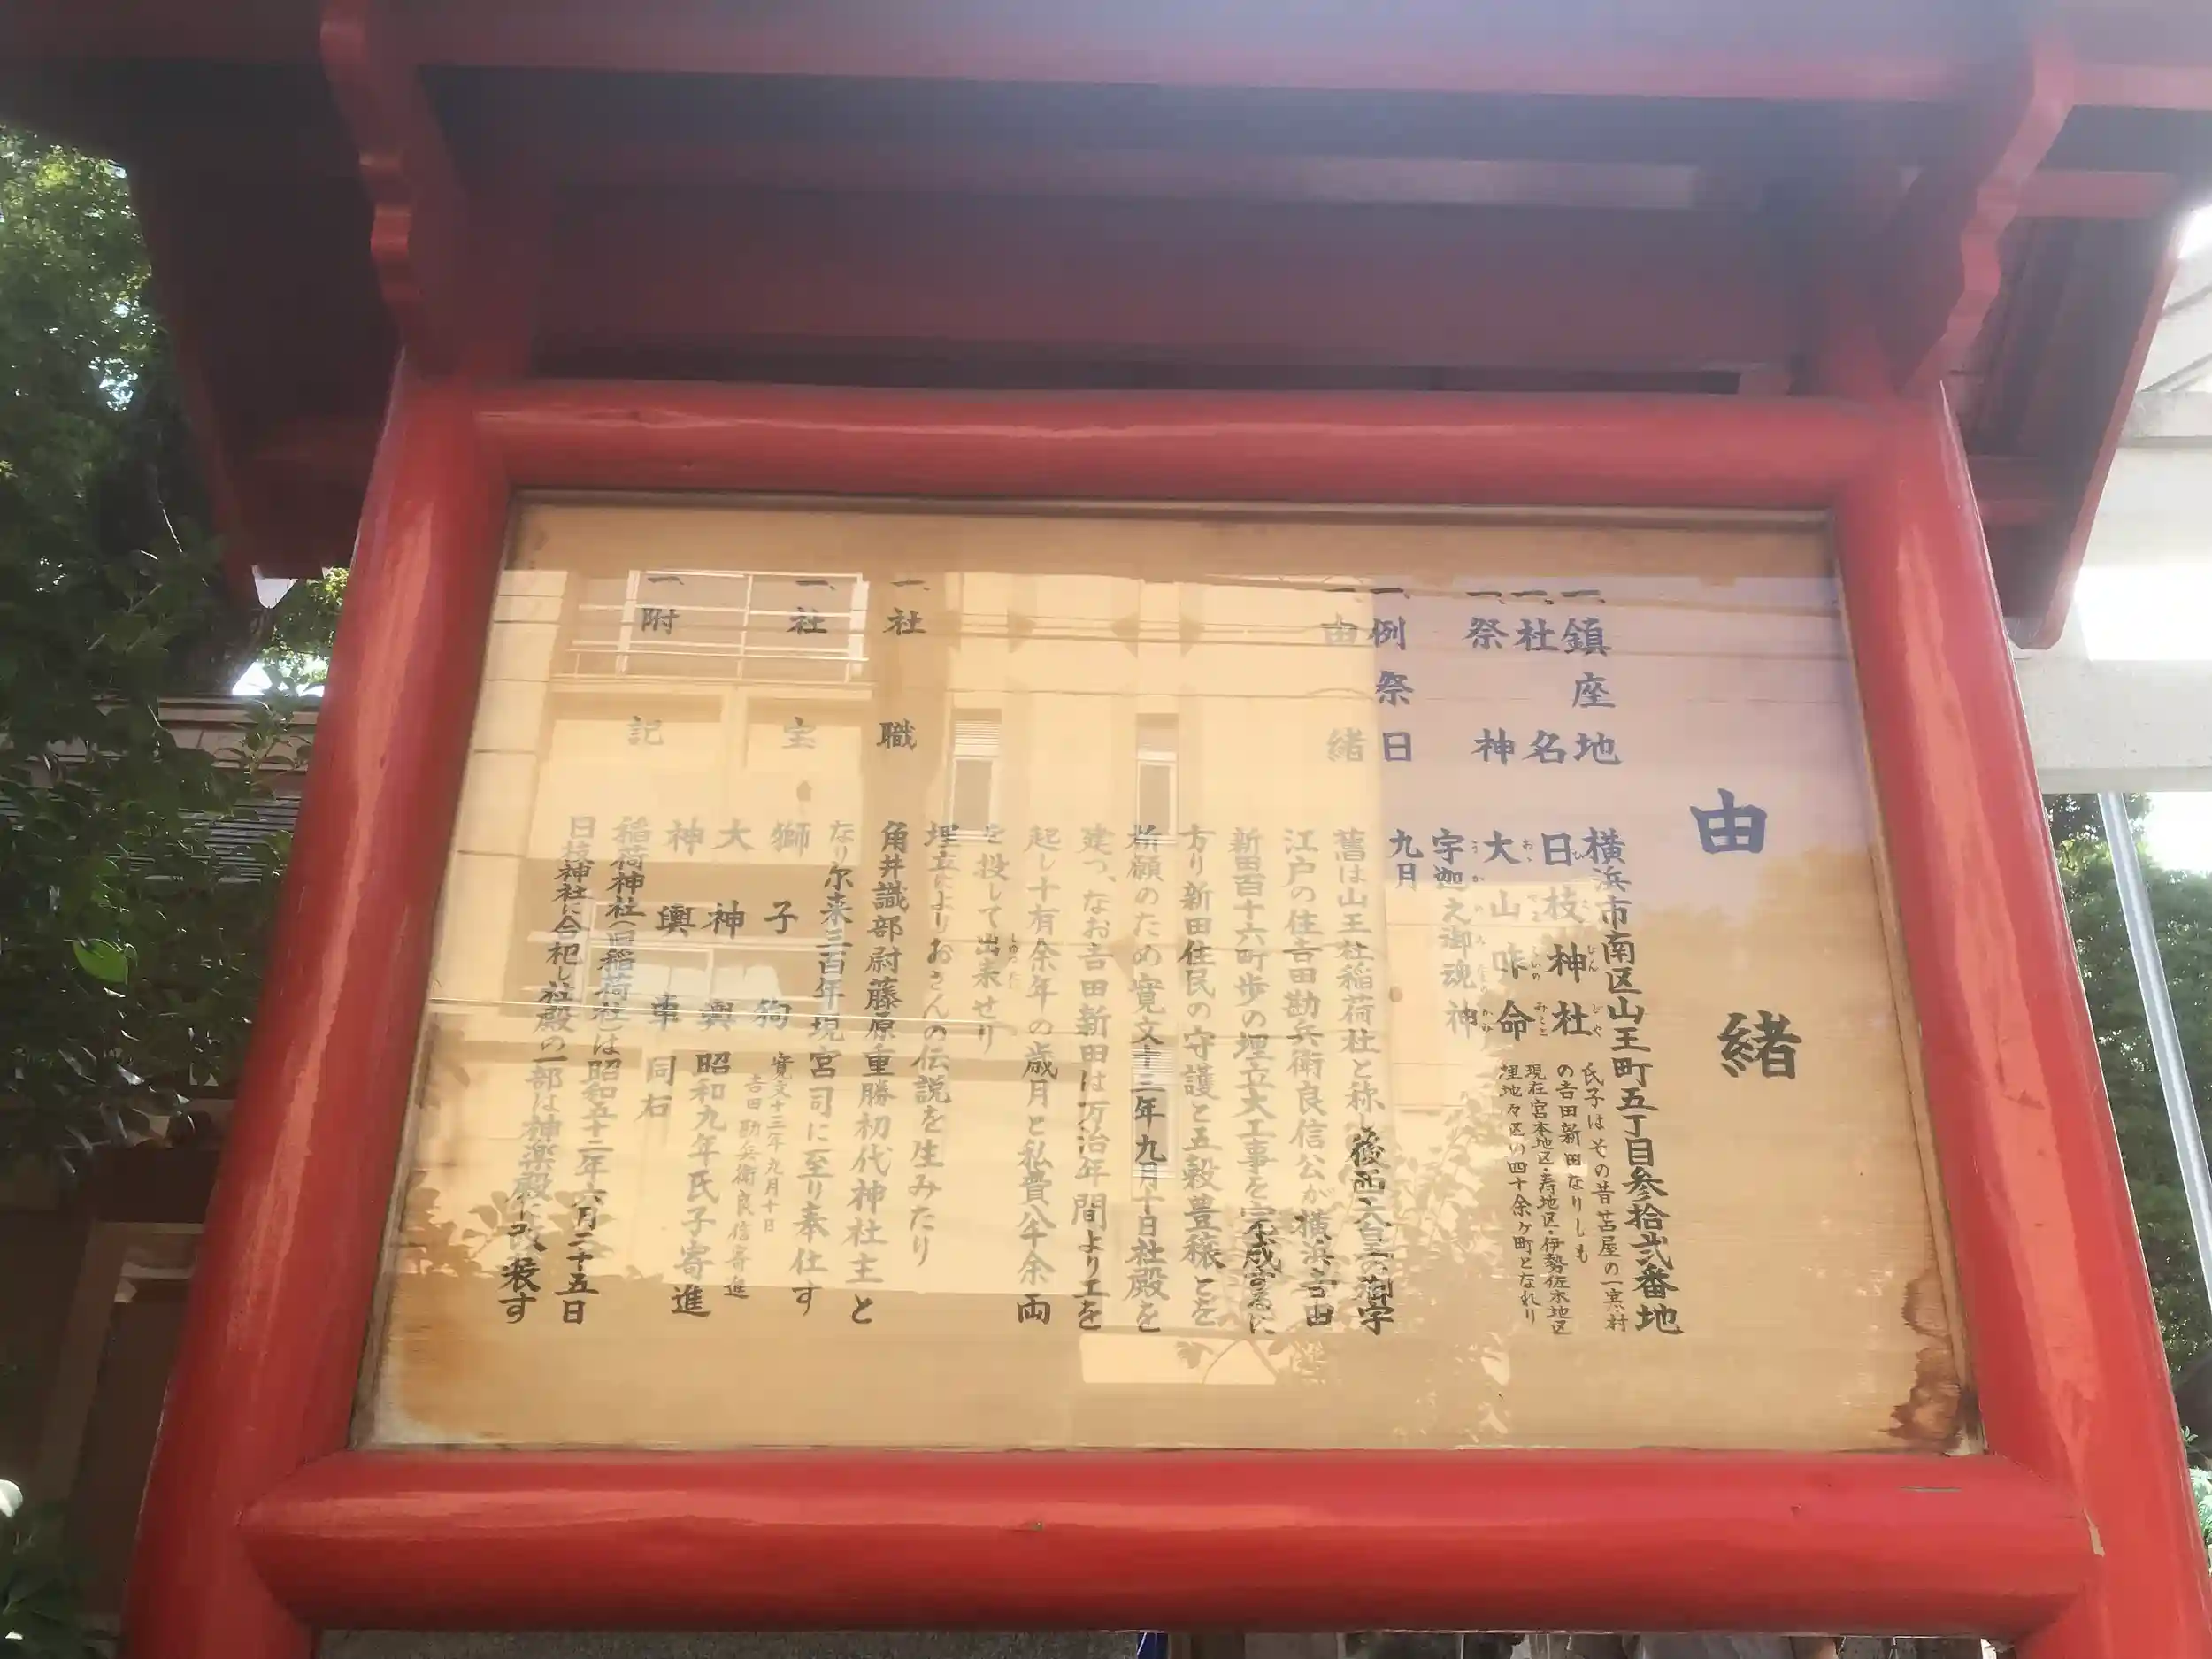 由緒
一、鎮座地 横浜市南区山王町五丁目参拾弐番地
一、社名 日枝神社 氏子はその昔苫屋の一寒村
の吉田新田なりしも
現在宮本地区・寿地区・伊勢佐木地区
埋地々区の四十余ヶ町となれり
一、祭神 大山咋命
宇迦之御魂神
一、例祭日 九月
一、由緒 舊は山王社稲荷社と称 後西天皇の御宇
江戸の住吉田勘兵衛良信公が横浜吉田
新田百十六町歩の埋立大工事を完成営に
方り新田住民の守護と五穀豊穣とを
祈願のため寛文十三年九月十日社殿を
建つ、なお吉田新田は万治年間より工を
起し十有余年の歳月と私費八千余両
を投して出来せり
埋立によりおさんの伝説を生みたり
一、社職 角井識部尉藤原重勝初代神社主と
なり尓来三百年現宮司に至り奉仕す
一、社宝 獅子狗 寛文十三年九月十日
吉田勘兵衛良信寄進
大神輿 昭和九年氏子寄進
神輿車 同右
一、附記 稲荷神社(旧稲荷社)は昭和五十二年六月二十五日
日枝神社に合祀し社殿の一部は神楽殿に改装す